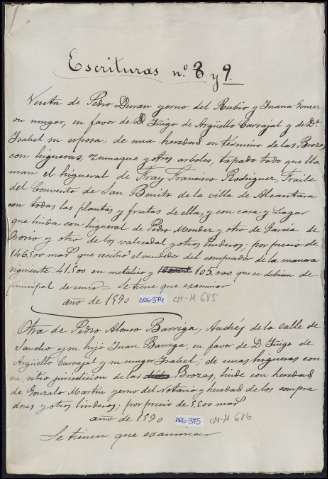 Escrituras nº 8 y 9
Venta de Pedro Duran yerno del Rubio y Juana Gomez
su muger, en favor de D. Diego de Argüello Carvajal y de Dª
Isabel su esposa de una heredad en término de las Brozas
con higueras, zumaque y otros arboles, tapado todo que lla
man el higueral de Fray Francisco Rodriguez, Fraile
del Convento de San Benito de la villa de Alcantara
con todas las plantas y frutas de ella, y con casa y Lagar
que linda con higueral de Pedro Mendez y otro de Garcia de
Osorio y otro de los y otros linderos; por precio de
146.500 mad que recibió el vendedor del comprador de la manera
siguiente 41.500 en metalico y 105.000 que se debian de
principal de censo. Se tiene que examinar
año de 1590 CM-M 685
Otra de Pedro Alonso Barriga, Andrés de la Calle de
Sancho y su hijo Juan Barriga, en favor de D. Diego de
Argüello Carvajal y su muger Isabel, de unas higueras con
su sitio jurisdiccion de las Brozas, linde con heredad
de Gonzalo Martin yerno del Notario y heredad de los compra
dores y otros linderos; por precio de 8500 mad
año de 1590 CM-M 686
Se tienen que examinar